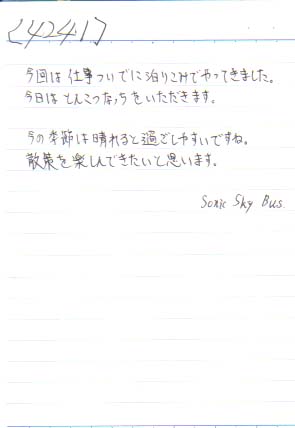 <2424>
今回は仕事ついでに泊りこみでやってきました。
今日はとんこつなっちをいただきます。
今の季節は晴れると過ごしやすいですね。
散策を楽しんできたいと思います。
Sonic Sky Bus.